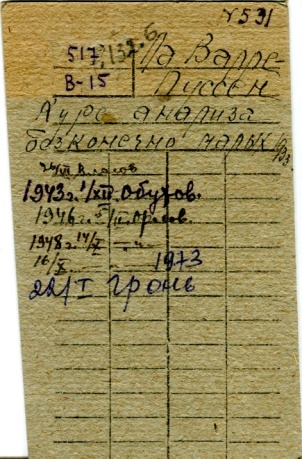 №531
517,132.6
В-15
Ла Валле-
Пуссен
Курс анализа
безконечно малых 1933.
24/VII Власов
1943г. 1/XII. Обухов.
1946г. 5/II. Орлов.
1948г. 14/X — " —
16/X. 1973
22/I Гронь